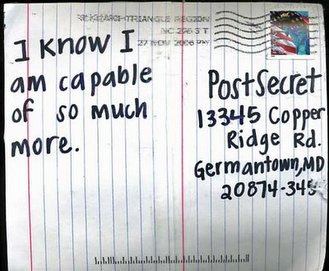 RESEARCH TRIANGLE REGION
NC 275 3 T
27 NOV 2006 PM
I KNOW I
am capable
of so much
more.
PostSecret
13345 Copper
Ridge Rd.
Germantown, MD
20874-345